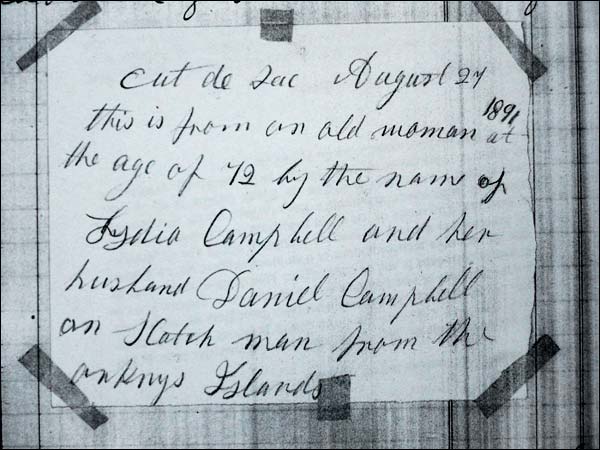 Cut de Sac August 27
1891
this is from an old woman at
the age of 72 by the name of
Lydia Campbell and her
husband Daniel Campbell
an Scotch man from the
orknys Islands